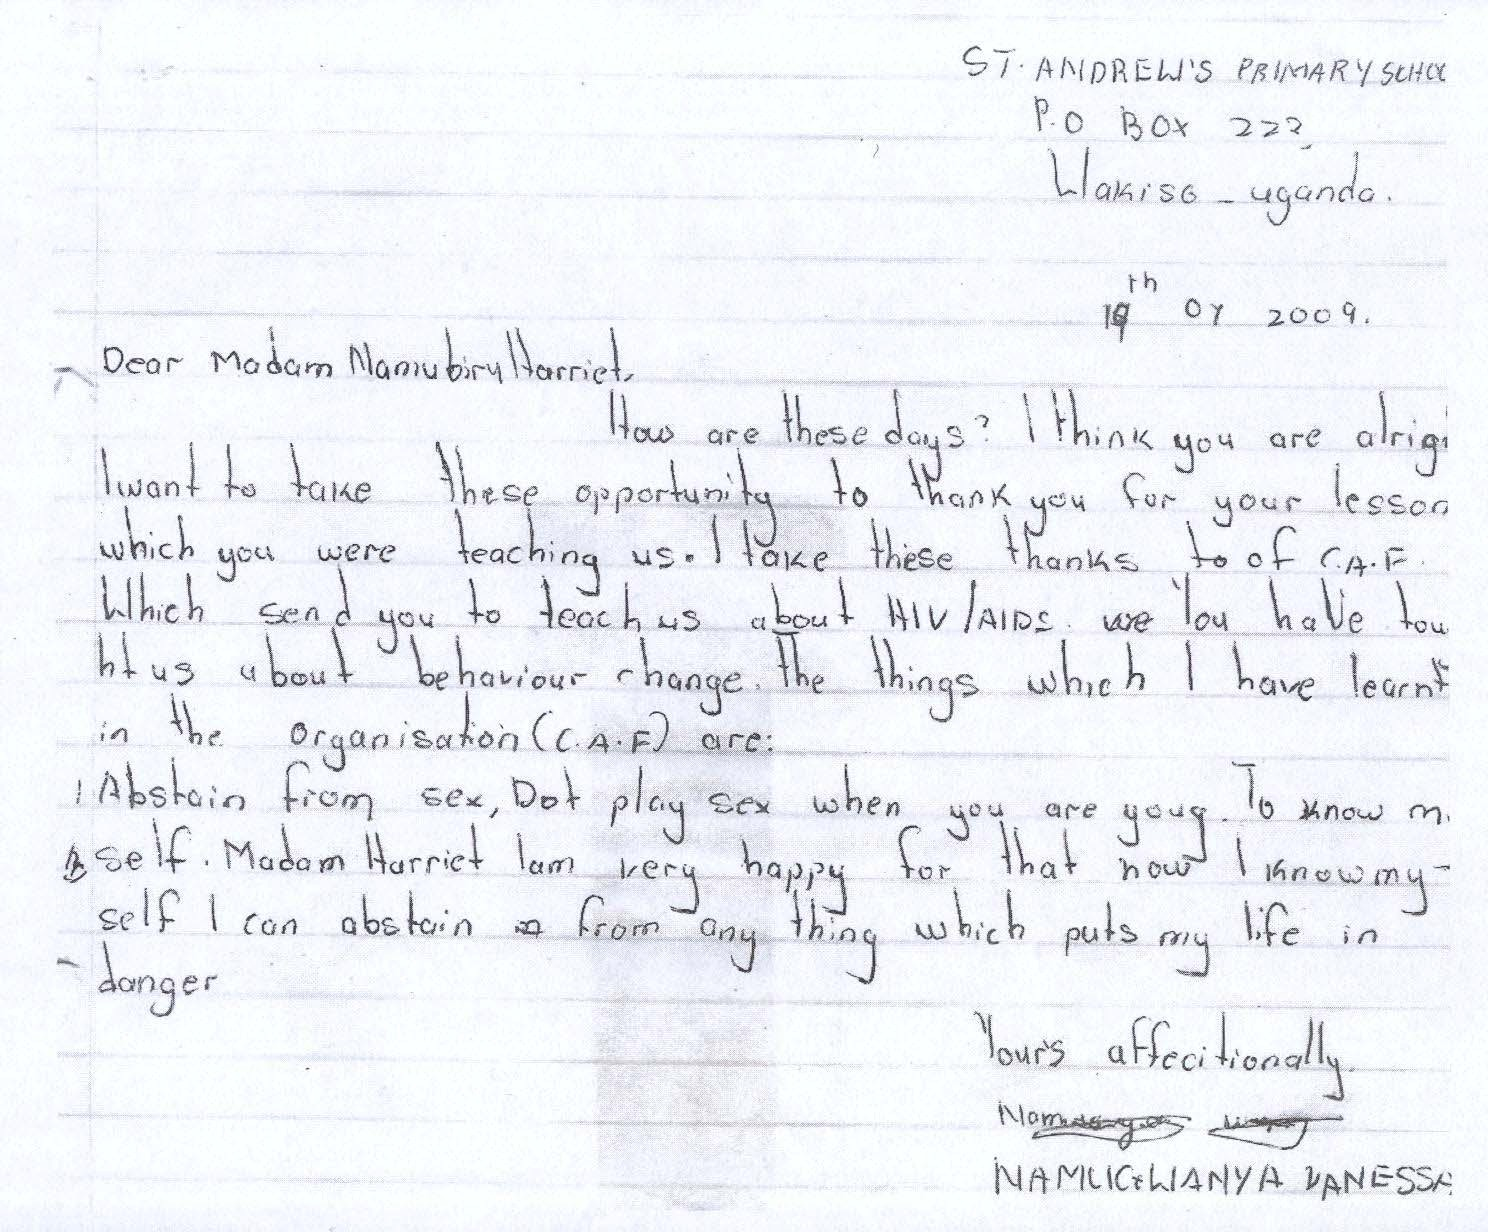 ST. ANDREW'S PRIMARY SCHOO
P.O BOX 222,
Wakiso - uganda.
19th 07 2009.
Dear Madam Namubiru Harriet,
How are these days? I think you are alrig
I want to take these opportunity to thank you for your lesson
which you were teaching us. I take these thanks to of C.A.F.
Which send you to teach us about HIV/AIDS. we You have tou
ht us about behaviour change. The things which I have learnt
in the organisation (C.A.F) are:
1 Abstain from sex, Dot play sex when you are youg. To know m
self. Madam Harriet I am very happy for that now I know my-
self I can abstain from any thing which puts my life in
danger
Your's affecitionally.
NAMUGWANYA VANESSA